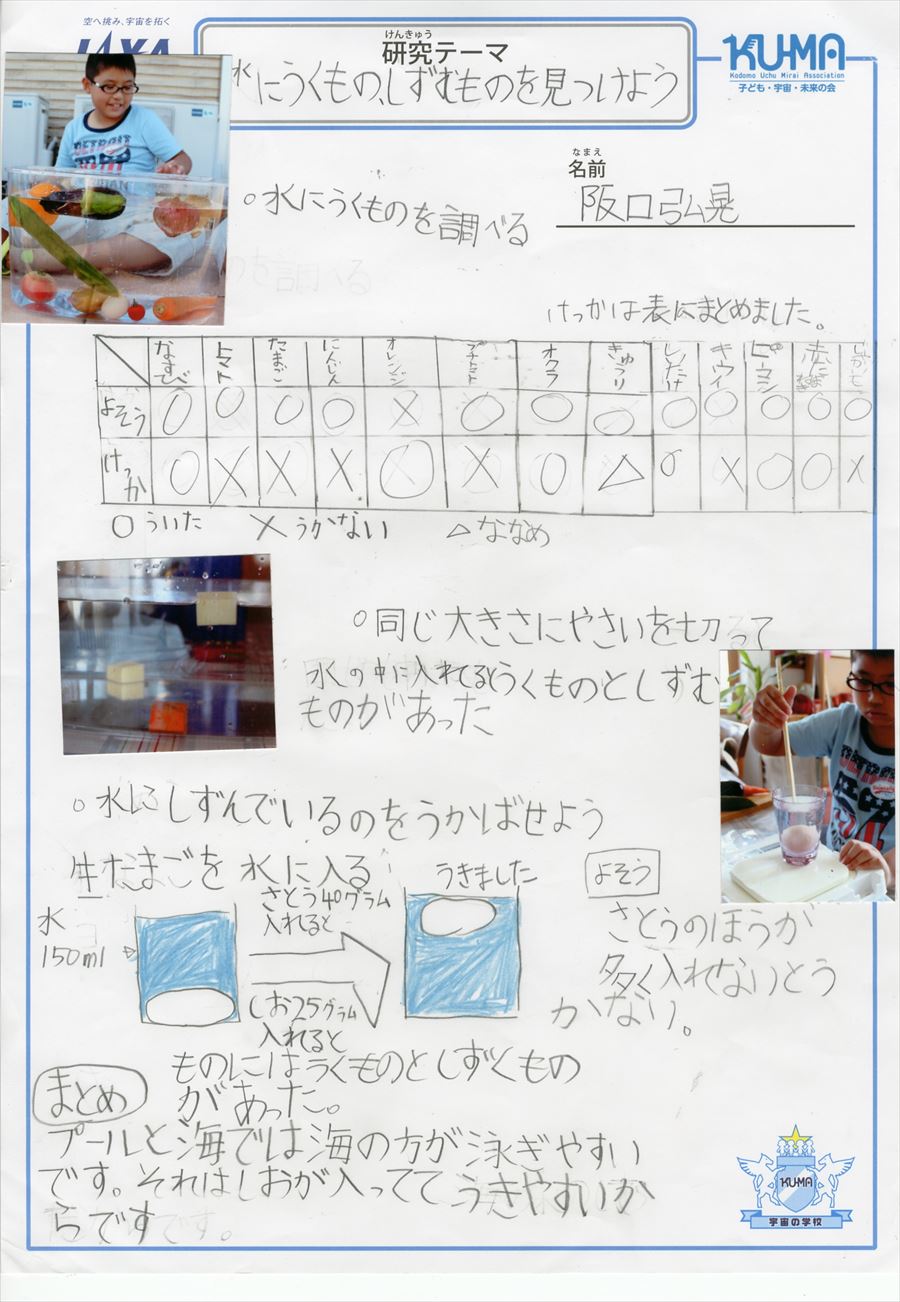 空へ挑み、宇宙を拓く
けんきゅう
研究テーマ
水にうくもの、しずむものを見つけよう
KU-MA
Kodomo Uchu Mirai Association
子ども・宇宙・未来の会
なまえ
名前
阪口弘晃
○水にうくものを調べる
けっかは表にまとめました。
なすび トマト たまご にんじん オレンジ プチトマト オクラ きゅうり しいたけ キウイ ピーマン 赤たまねぎ じゃがいも
よそう ○ ○ ○ ○ × ○ ○ ○ ○ ○ ○ ○ ○
けっか ○ × × × ○ × ○ △ ○ × ○ ○ ×
○ういた ×うかない △ななめ
○同じ大きさにやさいを切って
水の中に入れるとうくものとしずむ
ものがあった
○水にしずんでいるのをうかばせよう
生たまごを水に入る
水
150ml
さとう40グラム
入れると
しお25グラム
入れると
うきました
よそう
さとうのほうが
多く入れないとう
かない。
まとめ
ものにはうくものとしずくもの
があった。
プールと海では海の方が泳ぎやすい
です。それはしおが入ってて うきやすいか
らです
KU-MA
宇宙の学校